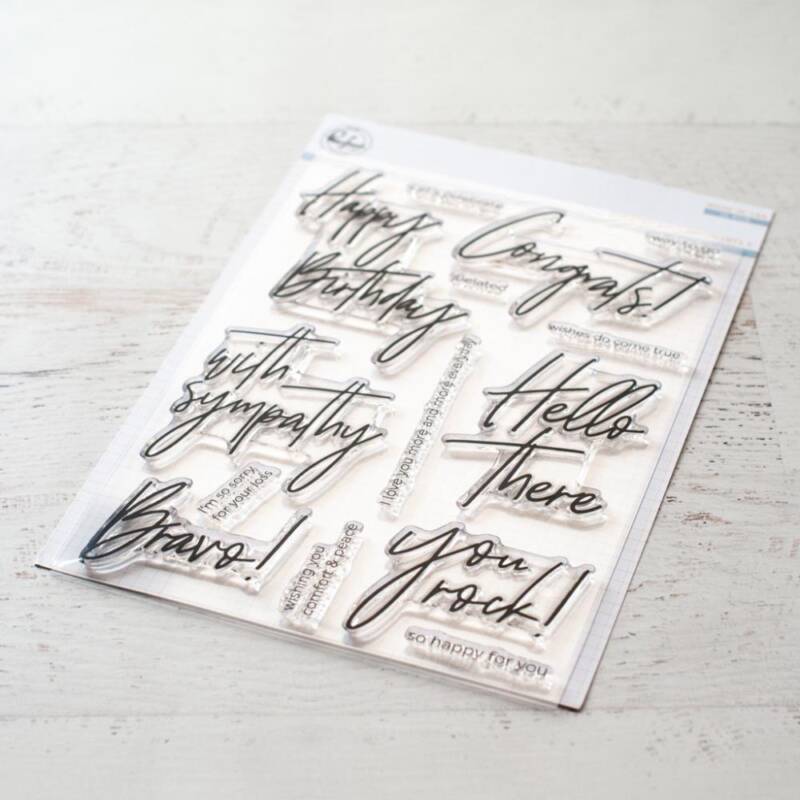 Happy
Birthday
let's celebrate
Congrats!
way to go
belated
wishes do come true
with
sympathy
I love you more and more everyday
Hello
There
I'm so sorry
for your loss
Bravo!
wishing you
comfort & peace
you
rock!
so happy for you